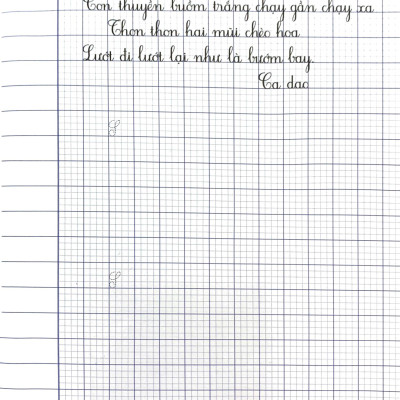 Con thuyền buồm trắng chạy gần chạy xa
Thon thon hai mũi chèo hoa
Lướt đi lướt lại như là bướm bay.
Ca dao